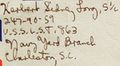 Herbert Sidney Long, S 1/c
647-90-59
U.S.S. L.S.T. 863
Navy Yard Branch
Charleston S.C.